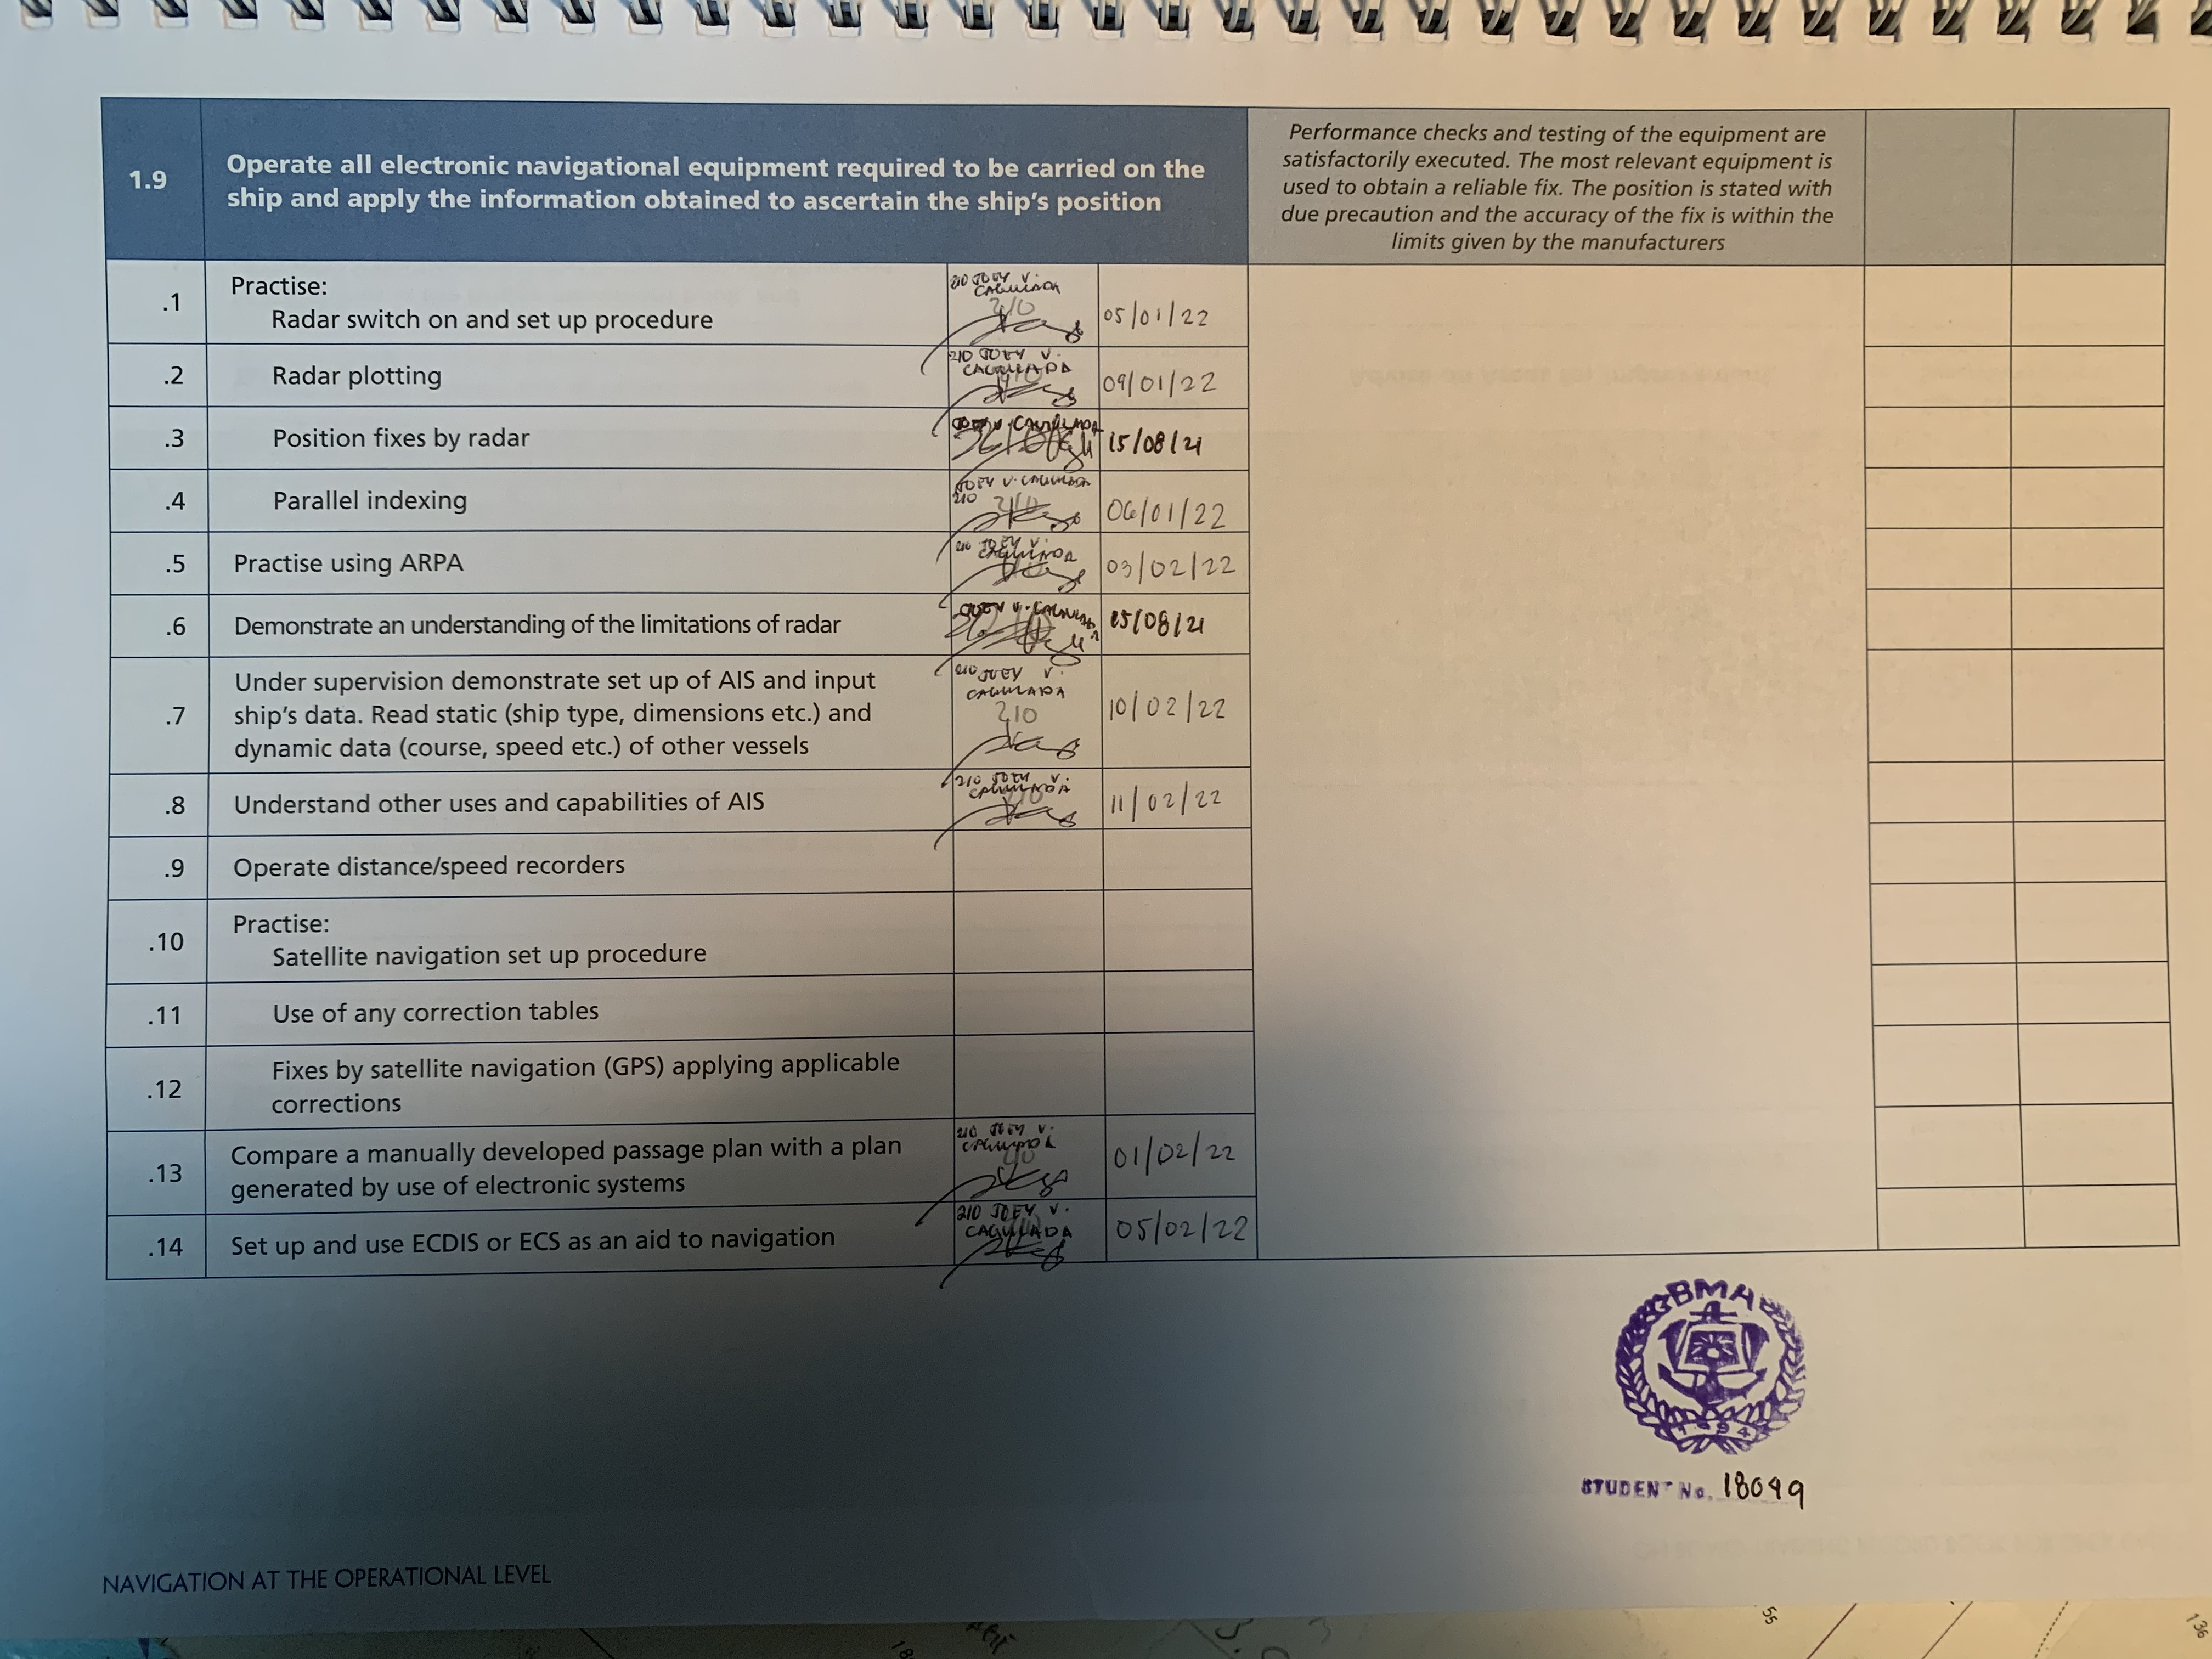 1.9
Operate all electronic navigational equipment required to be carried on the
ship and apply the information obtained to ascertain the ship's position
Performance checks and testing of the equipment are
satisfactorily executed. The most relevant equipment is
used to obtain a reliable fix. The position is stated with
due precaution and the accuracy of the fix is within the
limits given by the manufacturers
Practise:
.1 Radar switch on and set up procedure 05/01/22
.2 Radar plotting 09/01/22
.3 Position fixes by radar 15/08/21
.4 Parallel indexing 06/01/22
.5 Practise using ARPA 03/02/22
.6 Demonstrate an understanding of the limitations of radar 15/08/21
.7 Under supervision demonstrate set up of AIS and input
ship's data. Read static (ship type, dimensions etc.) and
dynamic data (course, speed etc.) of other vessels
10/02/22
.8 Understand other uses and capabilities of AIS 11/02/22
.9 Operate distance/speed recorders
Practise:
.10 Satellite navigation set up procedure
.11 Use of any correction tables
.12 Fixes by satellite navigation (GPS) applying applicable
corrections
.13 Compare a manually developed passage plan with a plan
generated by use of electronic systems
01/02/22
.14 Set up and use ECDIS or ECS as an aid to navigation 05/02/22
BMA
STUDENT No. 18099
NAVIGATION AT THE OPERATIONAL LEVEL
136